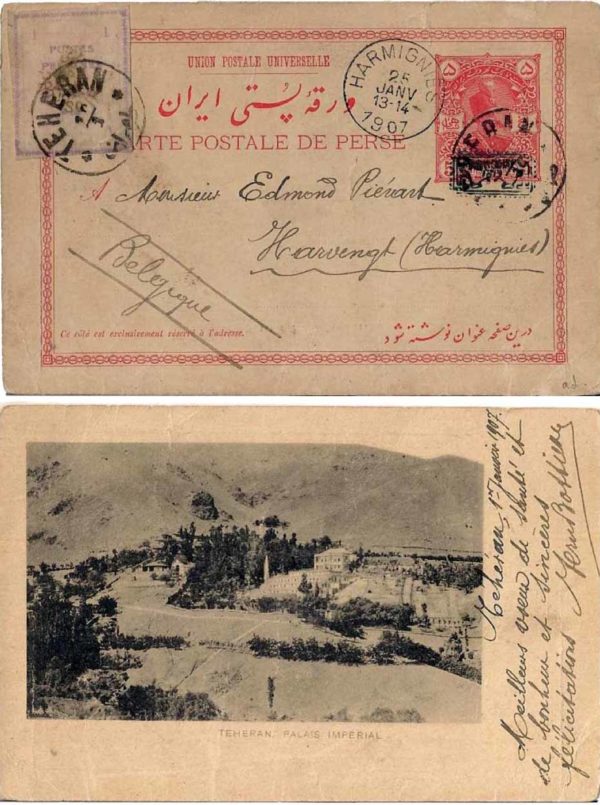 POSTES
TEHERAN
UNION POSTALE UNIVERSELLE
ورقهٔ پستی ایران
CARTE POSTALE DE PERSE
HARMIGNIES
25
JANV
13-14
1907
۵
۵
TEHERAN
A Monsieur Edmond Piérart
Harvengt (Harmignies)
Belgique
Ce côté est exclusivement réservé à l'adresse.
درین صفحه عنوان نوشته شود
TEHERAN. PALAIS IMPERIAL
Téhéran, 1er Janvier 1907.
Meilleurs vœux de santé et
de bonheur et sincères
félicitations